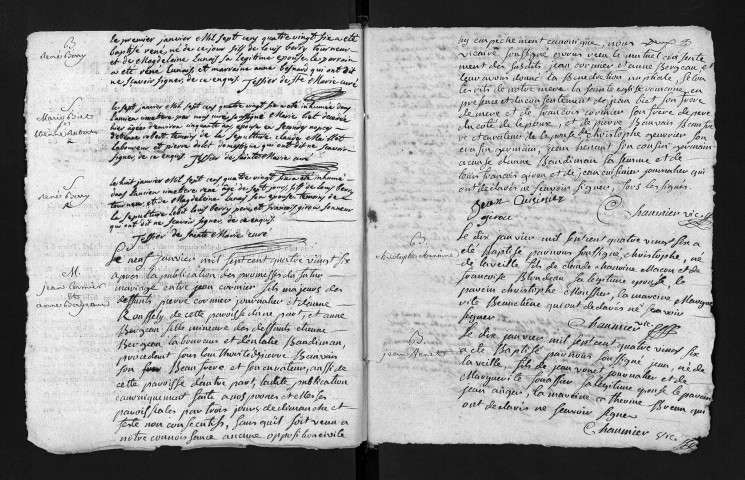 B
René Bovy
le premier janvier Mil sept cens quatre vingt six a ete
baptisé rené, né de ce jour fils de louis bovy tourneur
et de Magdelaine Lunais sa legitime epouse le parrain
a ete rené Lunais et marraine anne besnard qui ont dit
ne sçavoir signer de ce enquis. Tessier de Ste Marie curé
S
Marie Biet
le sept janvier Mil sept cens quatre vingt six a ete inhumée dans
Lancien cimetiere par nous curé soussigné Marie biet decedée
hier agée d'environ cinquante ans epouse en
de la sepulture claude
laboureur et pierre domestique qui ont dit ne sçavoir
signer, de ce enquis Tessier de Sainte Marie curé
S
René Bovy
le huit janvier Mil sept cens quatre vingt six a ete inhumé
dans Lancien cimetiere rené agé de sept jours, fils de louis bovy
tourneur, et de Magdelaine Lunais son epouse temoins de
la sepulture ledit louis bovy pere et francois giron sonneur
qui ont dit ne sçavoir signer de ce enquis
Tessier de Sainte Marie curé
M.
jean Cormier
et
anne Bergeau
Le neuf janvier mil sept cent quatre vingt six
apres la publication des promesses de futur
mariage entre jean cormier fils majeur des
deffunts pierre cormier journalier et anne
Roussely de cette paroisse d'une part, et anne
Bergeau fille mineure des deffunts etienne
Bergeau laboureur et Eulalie Baudiman,
procedant sous l'authorité de pierre Bauvais
son Beau frere et son curateur, aussi de
cette paroisse d'autre part, ladite publication
canoniquement faite a nos prones et Messes
paroissiales par trois jours de dimanche et
feste non consecutifs, sans qu'il soit venu a
notre connoissance aucune opposition civile
ny empêchement canonique, nous
vicaire soussigné avons reçu le mutuel consente
ment des susdits jean cormier et anne Bergeau et
leur avons donné la Benediction nuptiale selon
les rits de notre mere la sainte eglise romaine, en
presence et du consentement de jean biet son frere
de mere et de francois cormier son frere de pere
du coté de l'epoux, et de pierre Bauvais Beau fre
re et curateur de l'epouse, de christophe
cousin germain, jean son cousin germain
a cause d'anne Baudiman sa femme et de
louis francois giron et de jean cuisinier journalier qui
ont declaré ne sçavoir signer, fors les signés.
jean Cuisinier
giron
Chaumier vic.
B.
christophe
Le dix janvier mil sept cent quatre vingt six a
eté Baptisé par nous soussigné, christophe, né
de la veille fils de claude macon et de
francoise Blondeau sa legitime epouse, le
parein christophe la mareine Margue
rite qui ont declaré ne sçavoir
signer
Chaumier vic.
B.
jean
Le dix janvier mil sept cent quatre vingt six
a eté Baptisé par nous soussigné jean, né de
la veille, fils de jean journalier et de
Marguerite sa legitime epouse le parein
jean la mareine catherine qui
ont declaré ne sçavoir signer
Chaumier vic.